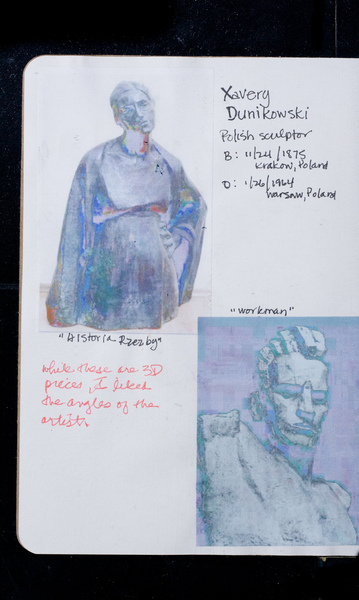 Xavery
Dunikowski
Polish sculptor
B: 11/24/1875
Krakow, Poland
D: 1/26/1964
Warsaw, Poland
"Aistoria Rzezby"
"workman"
while these are 3D
pieces, I liked
the angles of the
artist.